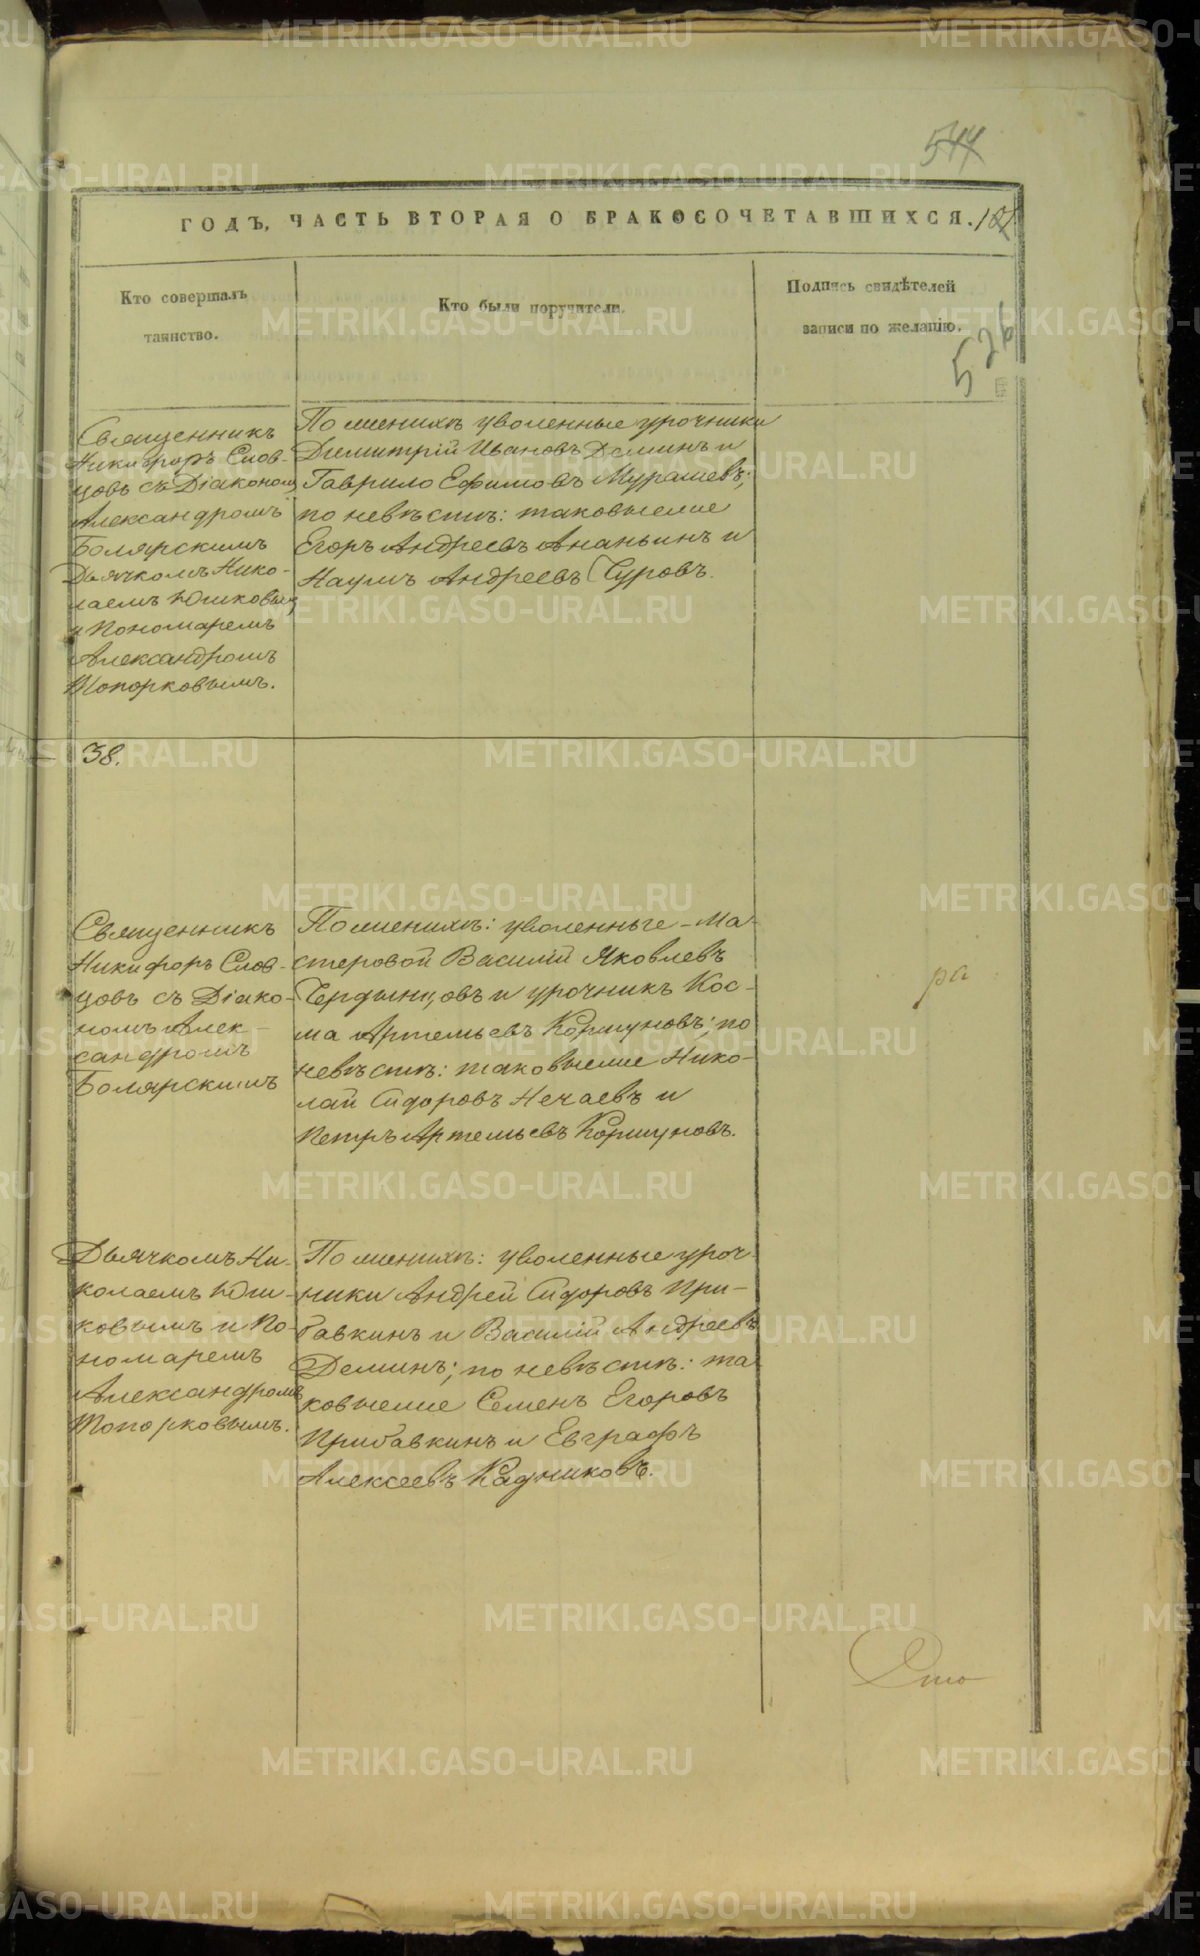 544
ГОДЪ, ЧАСТЬ ВТОРАЯ О БРАКОСОЧЕТАВШИХСЯ.
Кто совершалъ
таинство.
Кто были поручители.
Подпись свидѣтелей
записи по желанію.
526
Священникъ
Никифоръ Слов-
цовъ съ Діакономъ
Александромъ
Болярскимъ
Дьячкомъ Нико-
лаемъ Юшковымъ
и Пономаремъ
Александромъ
Топорковымъ.
По женихѣ уволенные урочники
Димитрій Ивановъ Деминъ и
Гаврило Ефимовъ Мурашевъ;
по невѣстѣ: таковыеже
Егоръ Андреевъ Ананьинъ и
Наумъ Андреевъ Суровъ.
38.
Священникъ
Никифоръ Слов-
цовъ съ Діако-
номъ Алек-
сандромъ
Болярскимъ
По женихѣ: уволенные – ма-
стеровой Василій Яковлевъ
Чердынцовъ и урочникъ Кос-
ма Артемьевъ Коршуновъ; по
невѣстѣ: таковыеже Нико-
лай Сидоровъ Нечаевъ и
Петръ Артемьевъ Коршуновъ.
ра
Дьячкомъ Ни-
колаемъ Юш-
ковымъ и По-
номаремъ
Александромъ
Топорковымъ.
По женихѣ: уволенные уроч-
ники Андрей Сидоровъ При-
бавкинъ и Василій Андреевъ
Деминъ; по невѣстѣ: та-
ковыеже Семенъ Егоровъ
Прибавкинъ и Евграфъ
Алексеевъ Кадниковъ.
METRIKI.GASO-URAL.RU